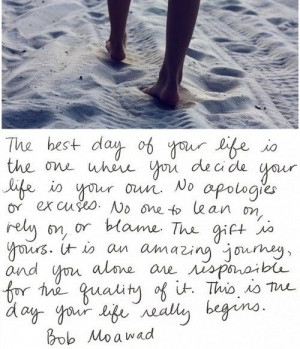 The best day of your life is
the one where you decide your
life is your own. No apologies
or excuses. No one to lean on,
rely on, or blame. The gift is
yours. It is an amazing journey,
and you alone are responsible
for the quality of it. This is the
day your life really begins.
Bob Moawad